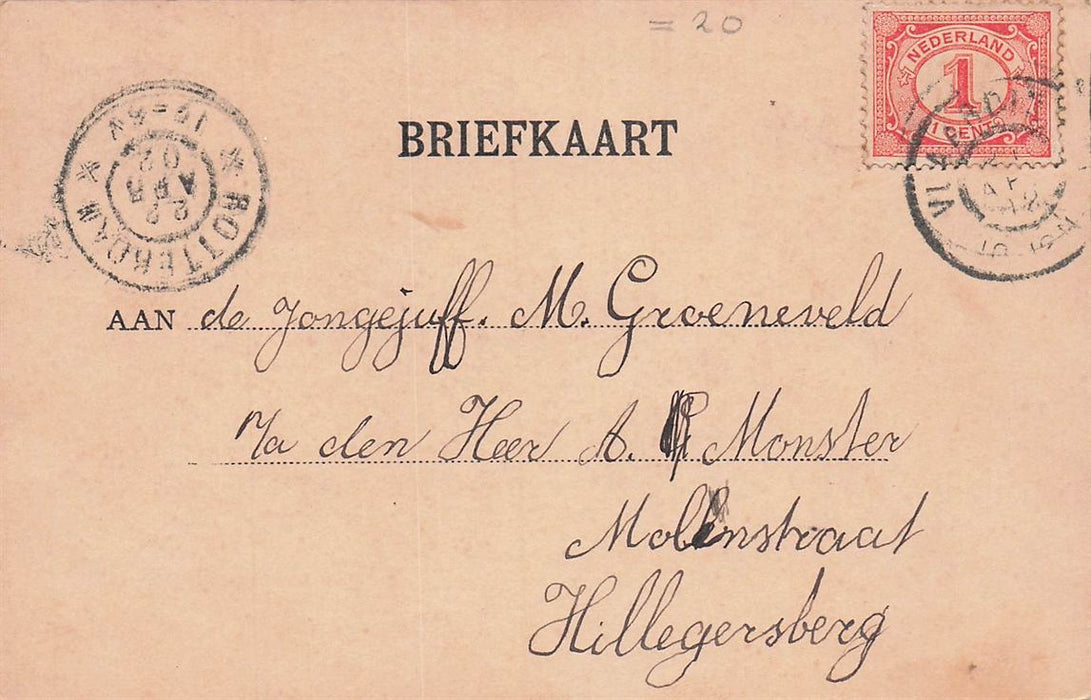 = 20
NEDERLAND
1
1 CENT
BRIEFKAART
* ROTTERDAM *
22
APR
02
AAN de Jongejuff. M. Groeneveld
p/a den Heer A. Monster
Molenstraat
Hillegersberg